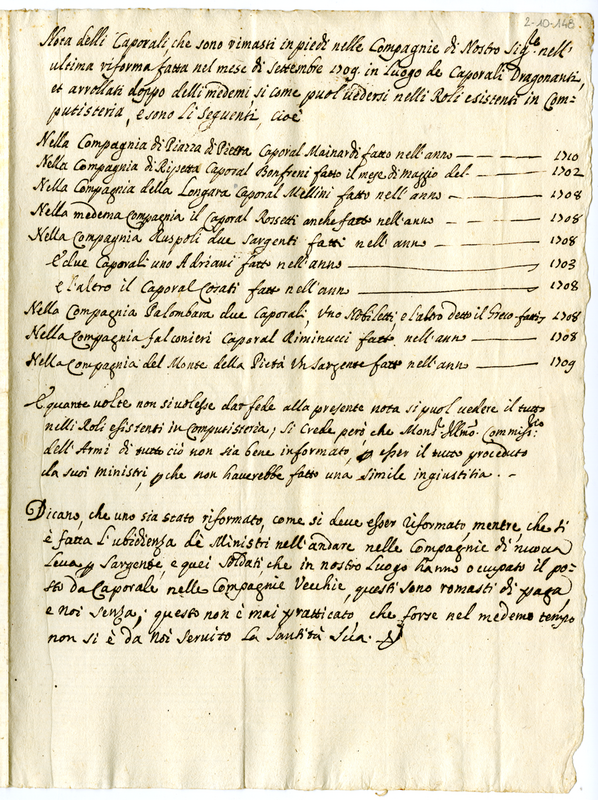 2-10-148
Nota delli Caporali, che sono rimasti in piedi nelle Compagnie di Nostro Sig.re nell'
ultima riforma fatta nel mese di Settembre 1709. in luogo de Caporali Dragonanti,
et arrollati doppo delli medemi, si come puol vedersi nelli Roli esistenti in Com=
putisteria, e sono li seguenti, cioè
Nella Compagnia di Piazza di Pietra Caporal Mainardi fatto nell'anno — 1710
Nella Compagnia di Ripetta Caporal Bonfreni fatto il mese di maggio del — 1702
Nella Compagnia della Longara Caporal Mellini fatto nell'anno — 1708
Nella medema Compagnia il Caporal Rossetti anche fatto nell'anno — 1708
Nella Compagnia Ruspoli due Sargenti fatti nell'anno — 1708
E due Caporali uno Adriani fatto nell'anno — 1703
e l'altro il Caporal Corati fatto nell'anno — 1708
Nella Compagnia Palombara due Caporali, uno Nobiletti, e l'altro detto il Greco fatti 1708
Nella Compagnia Falconieri Caporal Riminucci fatto nell'anno — 1708
Nella Compagnia del Monte della Pietà Un Sargente fatto nell'anno — 1709
E quante volte non si volesse dar fede alla presente nota si puol vedere il tutto
nelli Roli esistenti in Computisteria; si crede però che Mons.r Ill.mo Commiss.rio
dell'Armi di tutto ciò non sia bene informato, p esser il tutto proceduto
da suoi ministri, p che non haverebbe fatto una simile ingiustitia. -
Dicano, che uno sia stato riformato, come si deve esser riformato, mentre che si
è fatta l'ubidienza de Ministri nell'andare nelle Compagnie di nuova
Leva p Sargente, e quei Soldati che in nostro luogo hanno occupato il po=
sto da Caporale nelle Compagnie Vecchie, questi sono romasti di paga,
e Noi senza; questo non è mai pratticato, che forse nel medemo tempo
non si è da Noi servito la Santità Sua.